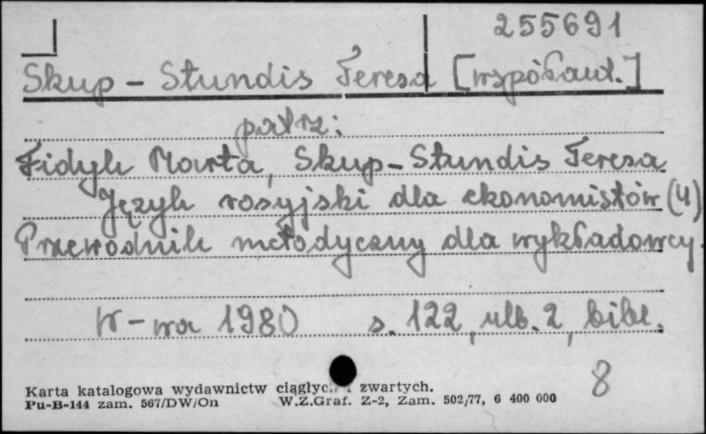 255691
Skup - Stundis Teresa [współaut.]
patrz:
Fidyk Marta, Skup-Stundis Teresa
Język rosyjski dla ekonomistów (4)
Przewodnik metodyczny dla wykładowcy.
W-wa 1980 s. 122, nlb. 2, bibl.
8
Karta katalogowa wydawnictw ciągłyc zwartych.
Pu-B-144 zam. 567/DW/On W.Z.Graf. Z-2, Zam. 502/77, 6 400 000